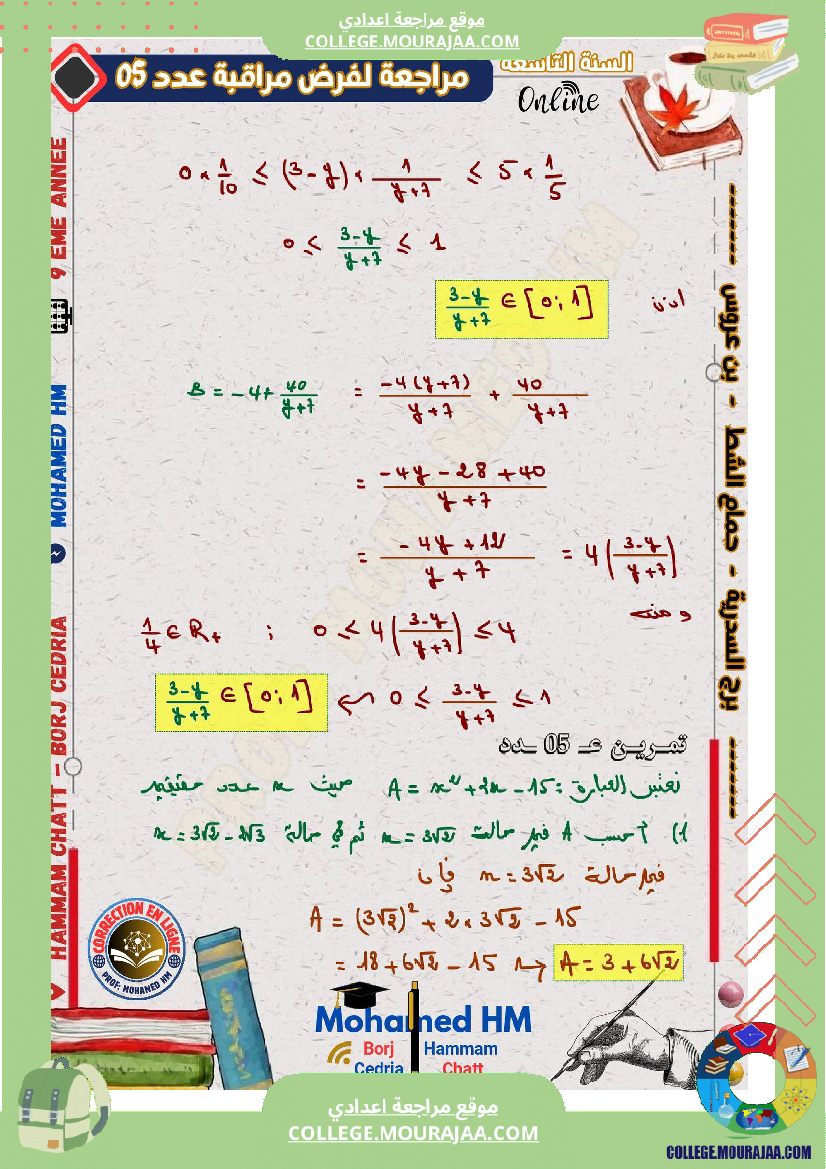 موقع مراجعة اعدادي
COLLEGE.MOURAJAA.COM
السنة التاسعة
مراجعة لفرض مراقبة عدد 05
Online
0 × 1/10 ≤ (3-y) × 1/(y+7) ≤ 5 × 1/5
0 ≤ (3-y)/(y+7) ≤ 1
اذن (3-y)/(y+7) ∈ [0;1]
B = -4 + 40/(y+7) = -4(y+7)/(y+7) + 40/(y+7)
= (-4y - 28 + 40)/(y+7)
= (-4y + 12)/(y+7) = 4((3-y)/(y+7))
ومنه
1/4 ∈ R+ ; 0 ≤ 4((3-y)/(y+7)) ≤ 4
(3-y)/(y+7) ∈ [0;1] ↩ 0 ≤ (3-y)/(y+7) ≤ 1
تمريـن عـ 05 ـدد
نعتبر العبارة : A = x² + 2x - 15 حيث x عدد حقيقي
1) أحسب A في حالة x = 3√2 ثم في حالة x = 3√2 - 2√3
في حالة x = 3√2 فإن
A = (3√2)² + 2 × 3√2 - 15
= 18 + 6√2 - 15 ↝ A = 3 + 6√2
9 EME ANNEE
MOHAMED HM
HAMMAM CHATT - BORJ CEDRIA
برج السدرية - حمام الشط - بن عروس
PROF MOHAMED HM
CORRECTION EN LIGNE
PROF: MOHAMED HM
Mohamed HM
Borj Hammam
Cedria Chatt
موقع مراجعة اعدادي
COLLEGE.MOURAJAA.COM
COLLEGE.MOURAJAA.COM